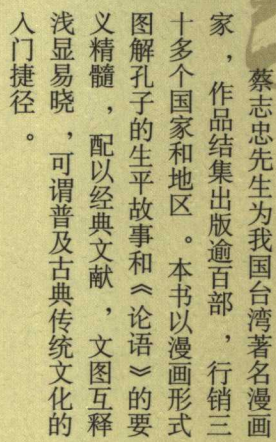 蔡志忠先生为我国台湾著名漫画
家，作品结集出版逾百部，行销三
十多个国家和地区。本书以漫画形式
图解孔子的生平故事和《论语》的要
义精髓，配以经典文献，文图互释
浅显易晓，可谓普及古典传统文化的
入门捷径。